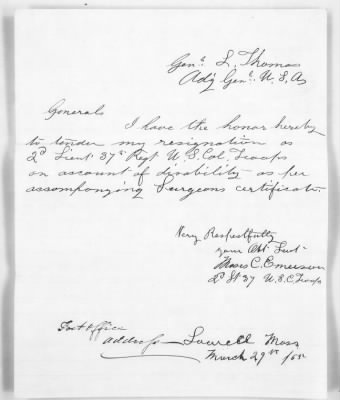 Genl. L. Thomas
Adj Genl. U.S.A
Generals
I have the honor hereby
to tender my resignation as
2d Lieut. 37th Regt U.S. Col. Troops
on account of disability as per
accompanying Surgeons certificate.
Very Respectfully
your Obt Svt
Moses C. Emerson
2d Lt 37 U.S.C. Troops
Post Office
address Lowell Mass
March 29th /65